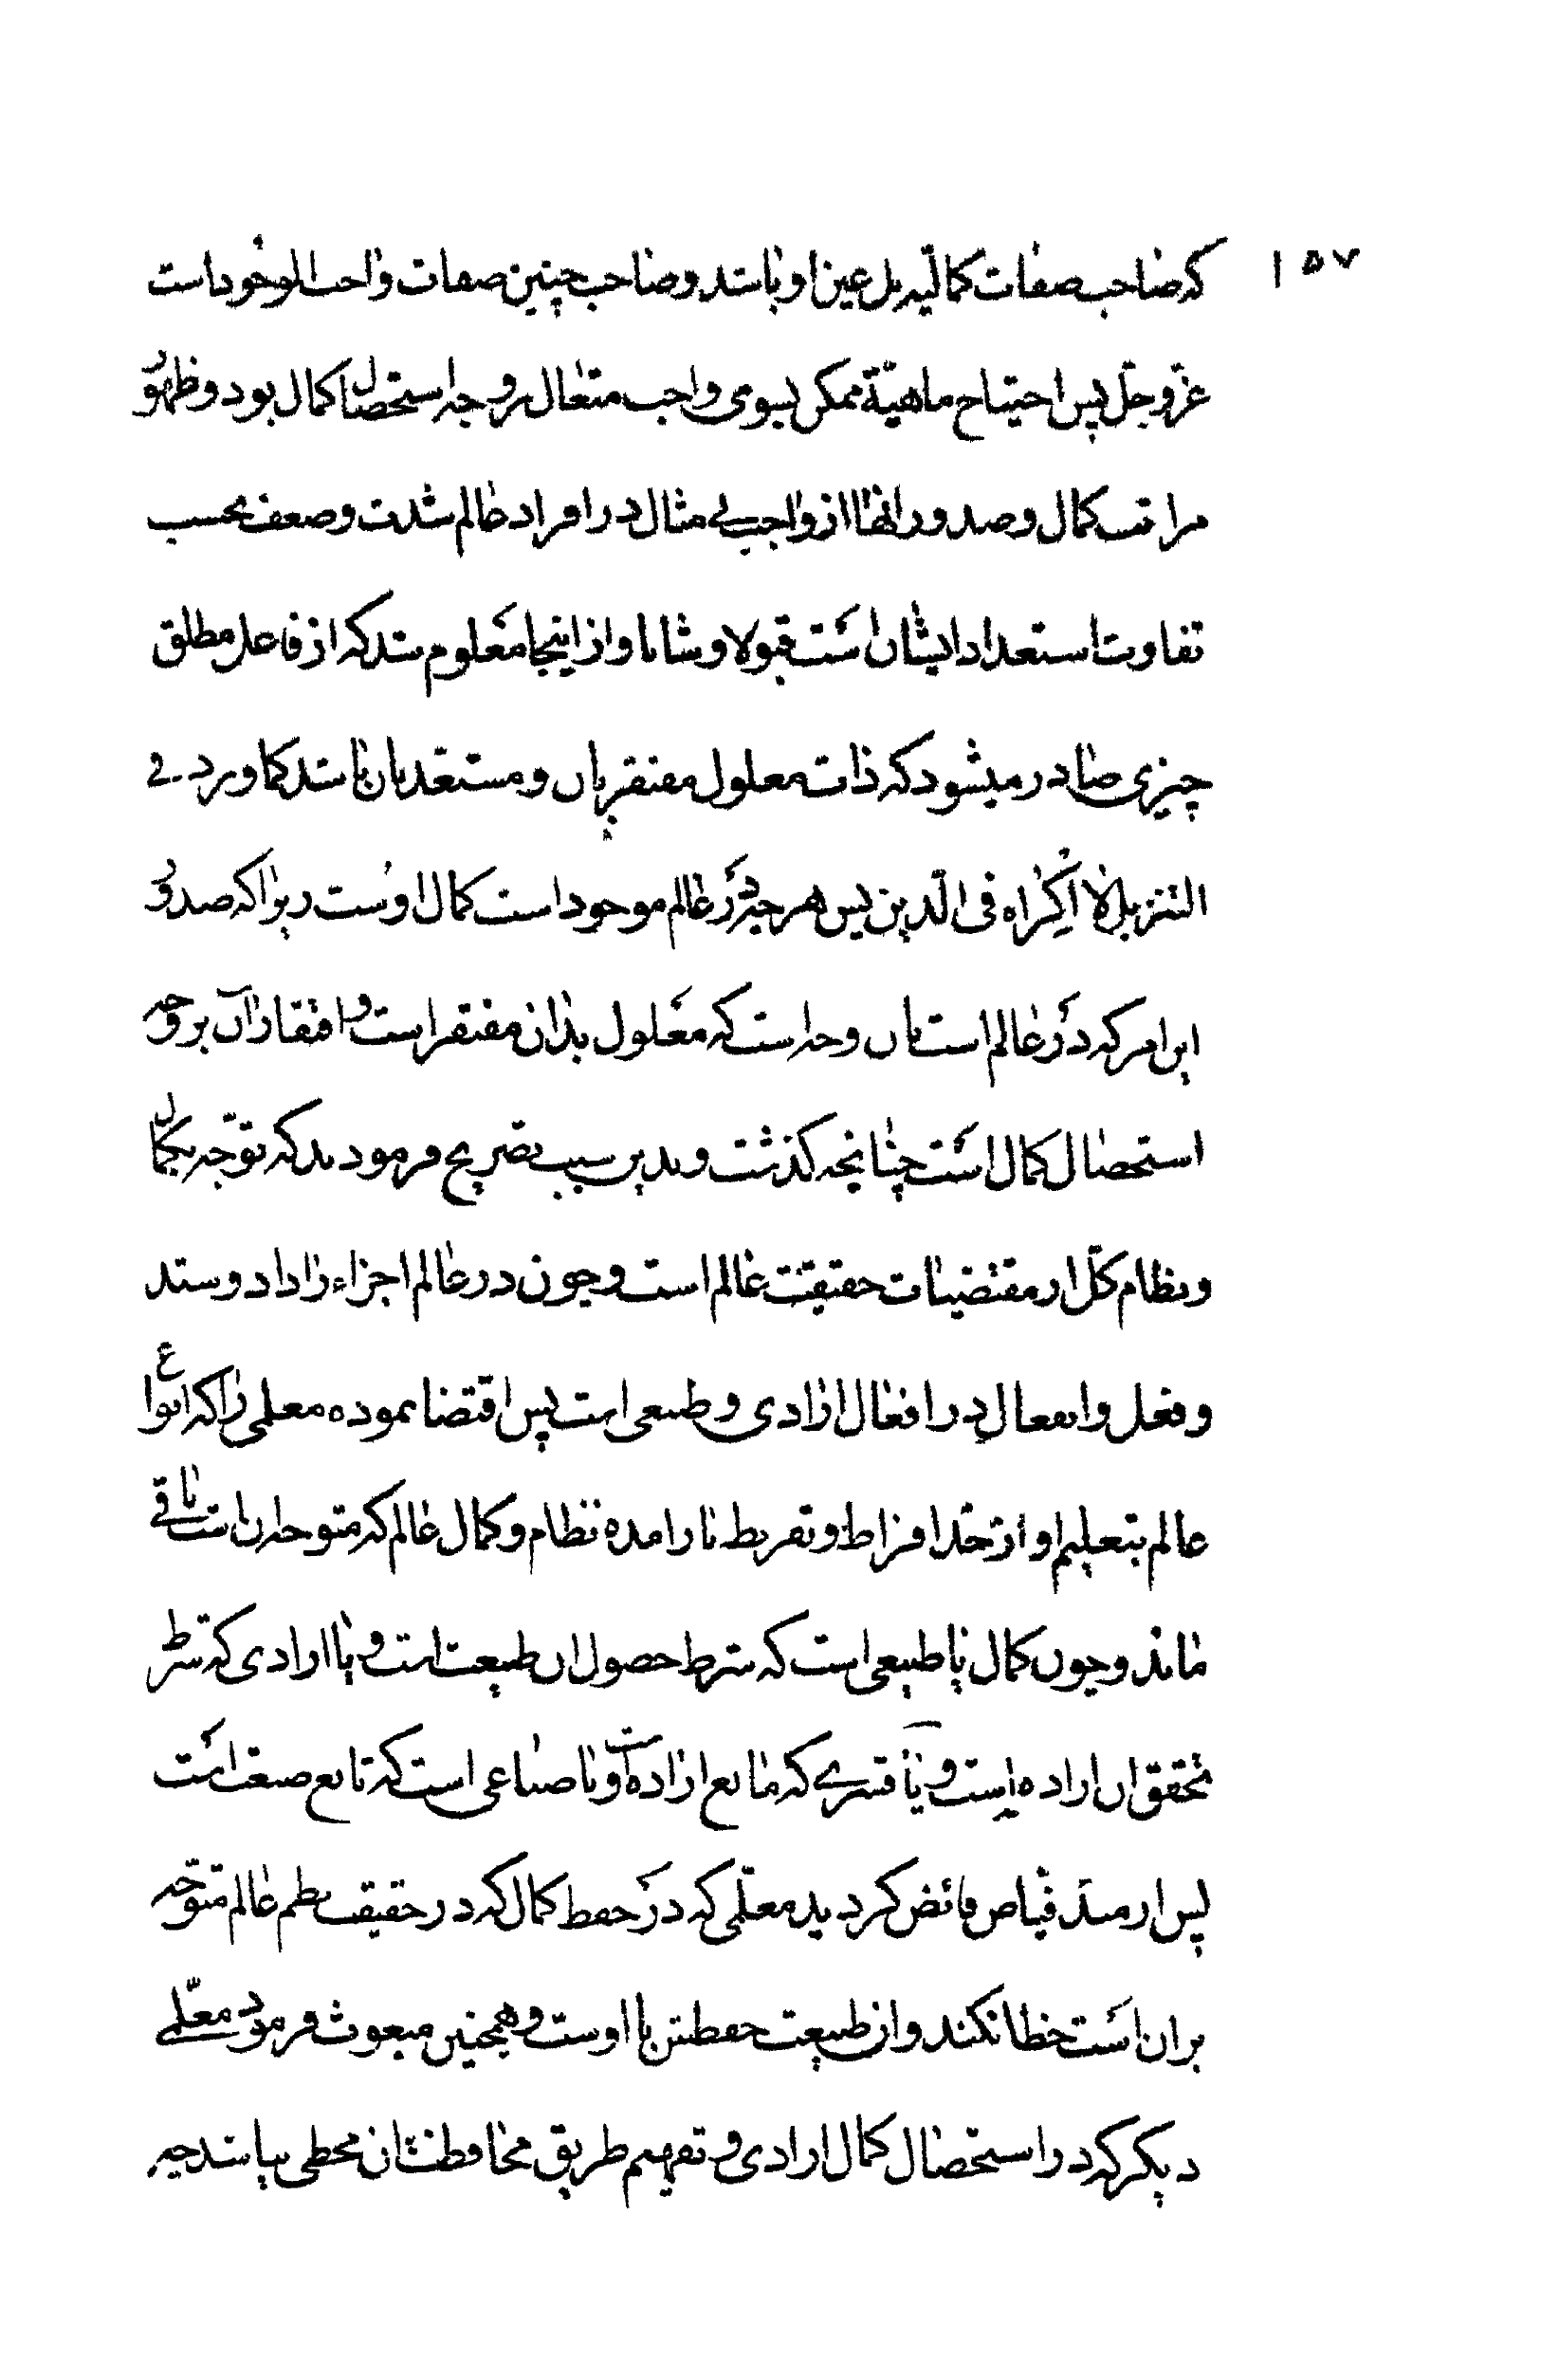 ۱۵۷
که صاحب صفات کمالیّه بل عین او باشد و صاحب چنین صفات واجب الوجود است
عزّ و جلّ پس احتیاج ماهیّة ممکن بسوی واجب متعال بر وجه استحصال کمال بود و ظهور
مراتب کمال و صدور انها از واجب بی مثال در افراد عالم شدت و ضعف بحسب
تفاوت استعداد ایشان است قبولا و شانا و از اینجا معلوم شد که از فاعل مطلق
چیزی صادر میشود که ذات معلول مفتقر بان و مستعد بان باشد کما ورد فی
التنزیل لا اکراه فی الدّین پس هر چه در عالم موجود است کمال اوست زیرا که صدور
این امر که در عالم است بان وجه است که معلول بذان مفتقر است و افتقار آن بر وجه
استحصال کمال است چنانچه کذشت و بدین سبب تصریح فرمودند که توجّه بکمال
و نظام کلّ از مقتضیات حقیقت عالم است و چون در عالم اجزاء را داد و ستد
و فعل و انفعال در افعال ارادی و طبیعی است پس اقتضا نموده معلمی را که انواع
عالم بتعلیم او از حدّ افراط و تفریط نا را مده نظام و کمال عالم که متوجه ان است باقی
ماند و چون کمال یا طبیعی است که شرط حصول ان طبیعت است و یا ارادی که شرط
تحقق ان اراده است و یا قسری که مانع اراده است و یا صناعی است که تابع صنعت است
پس از مبدّ فیّاض فائض کردید معلّمی که در حفظ کمال که در حقیقت نظم عالم متوجّه
بران است خطا نکند و ان طبیعت حفظش با اوست و همچنین مبعوث فرمود معلّمی
دیکر که در استحصال کمال ارادی و تفهیم طریق محافظتشان مخطی نباشد چه